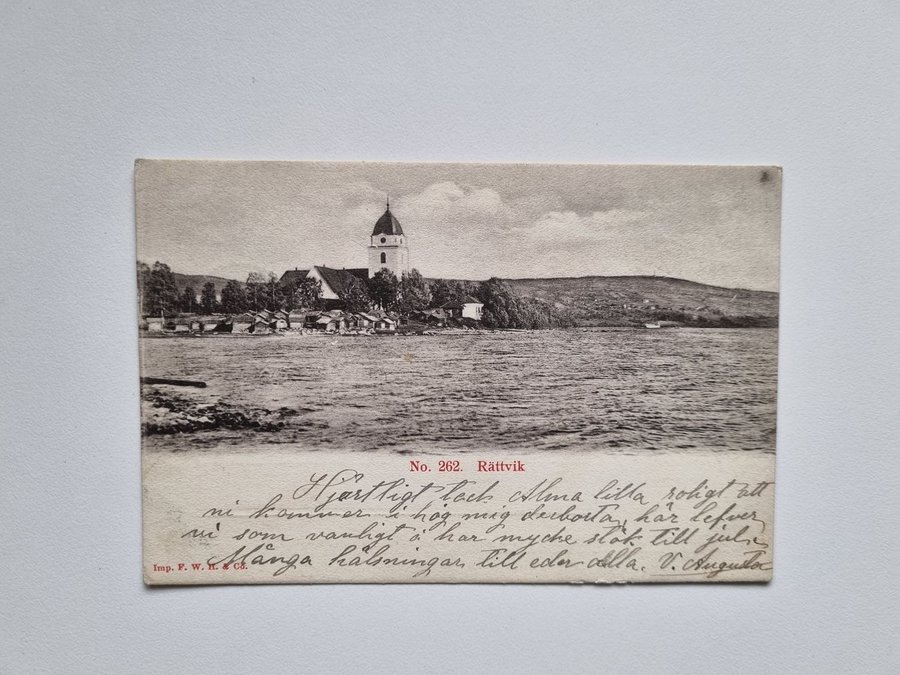 No. 262. Rättvik
Hjärtligt tack Alma lilla roligt att
ni kommer i hög mig derborta, här lefver
vi som vanligt o har mycke stök till jul.
Många hälsningar till eder alla. V. Augusta
Imp. F. W. H. & Co.